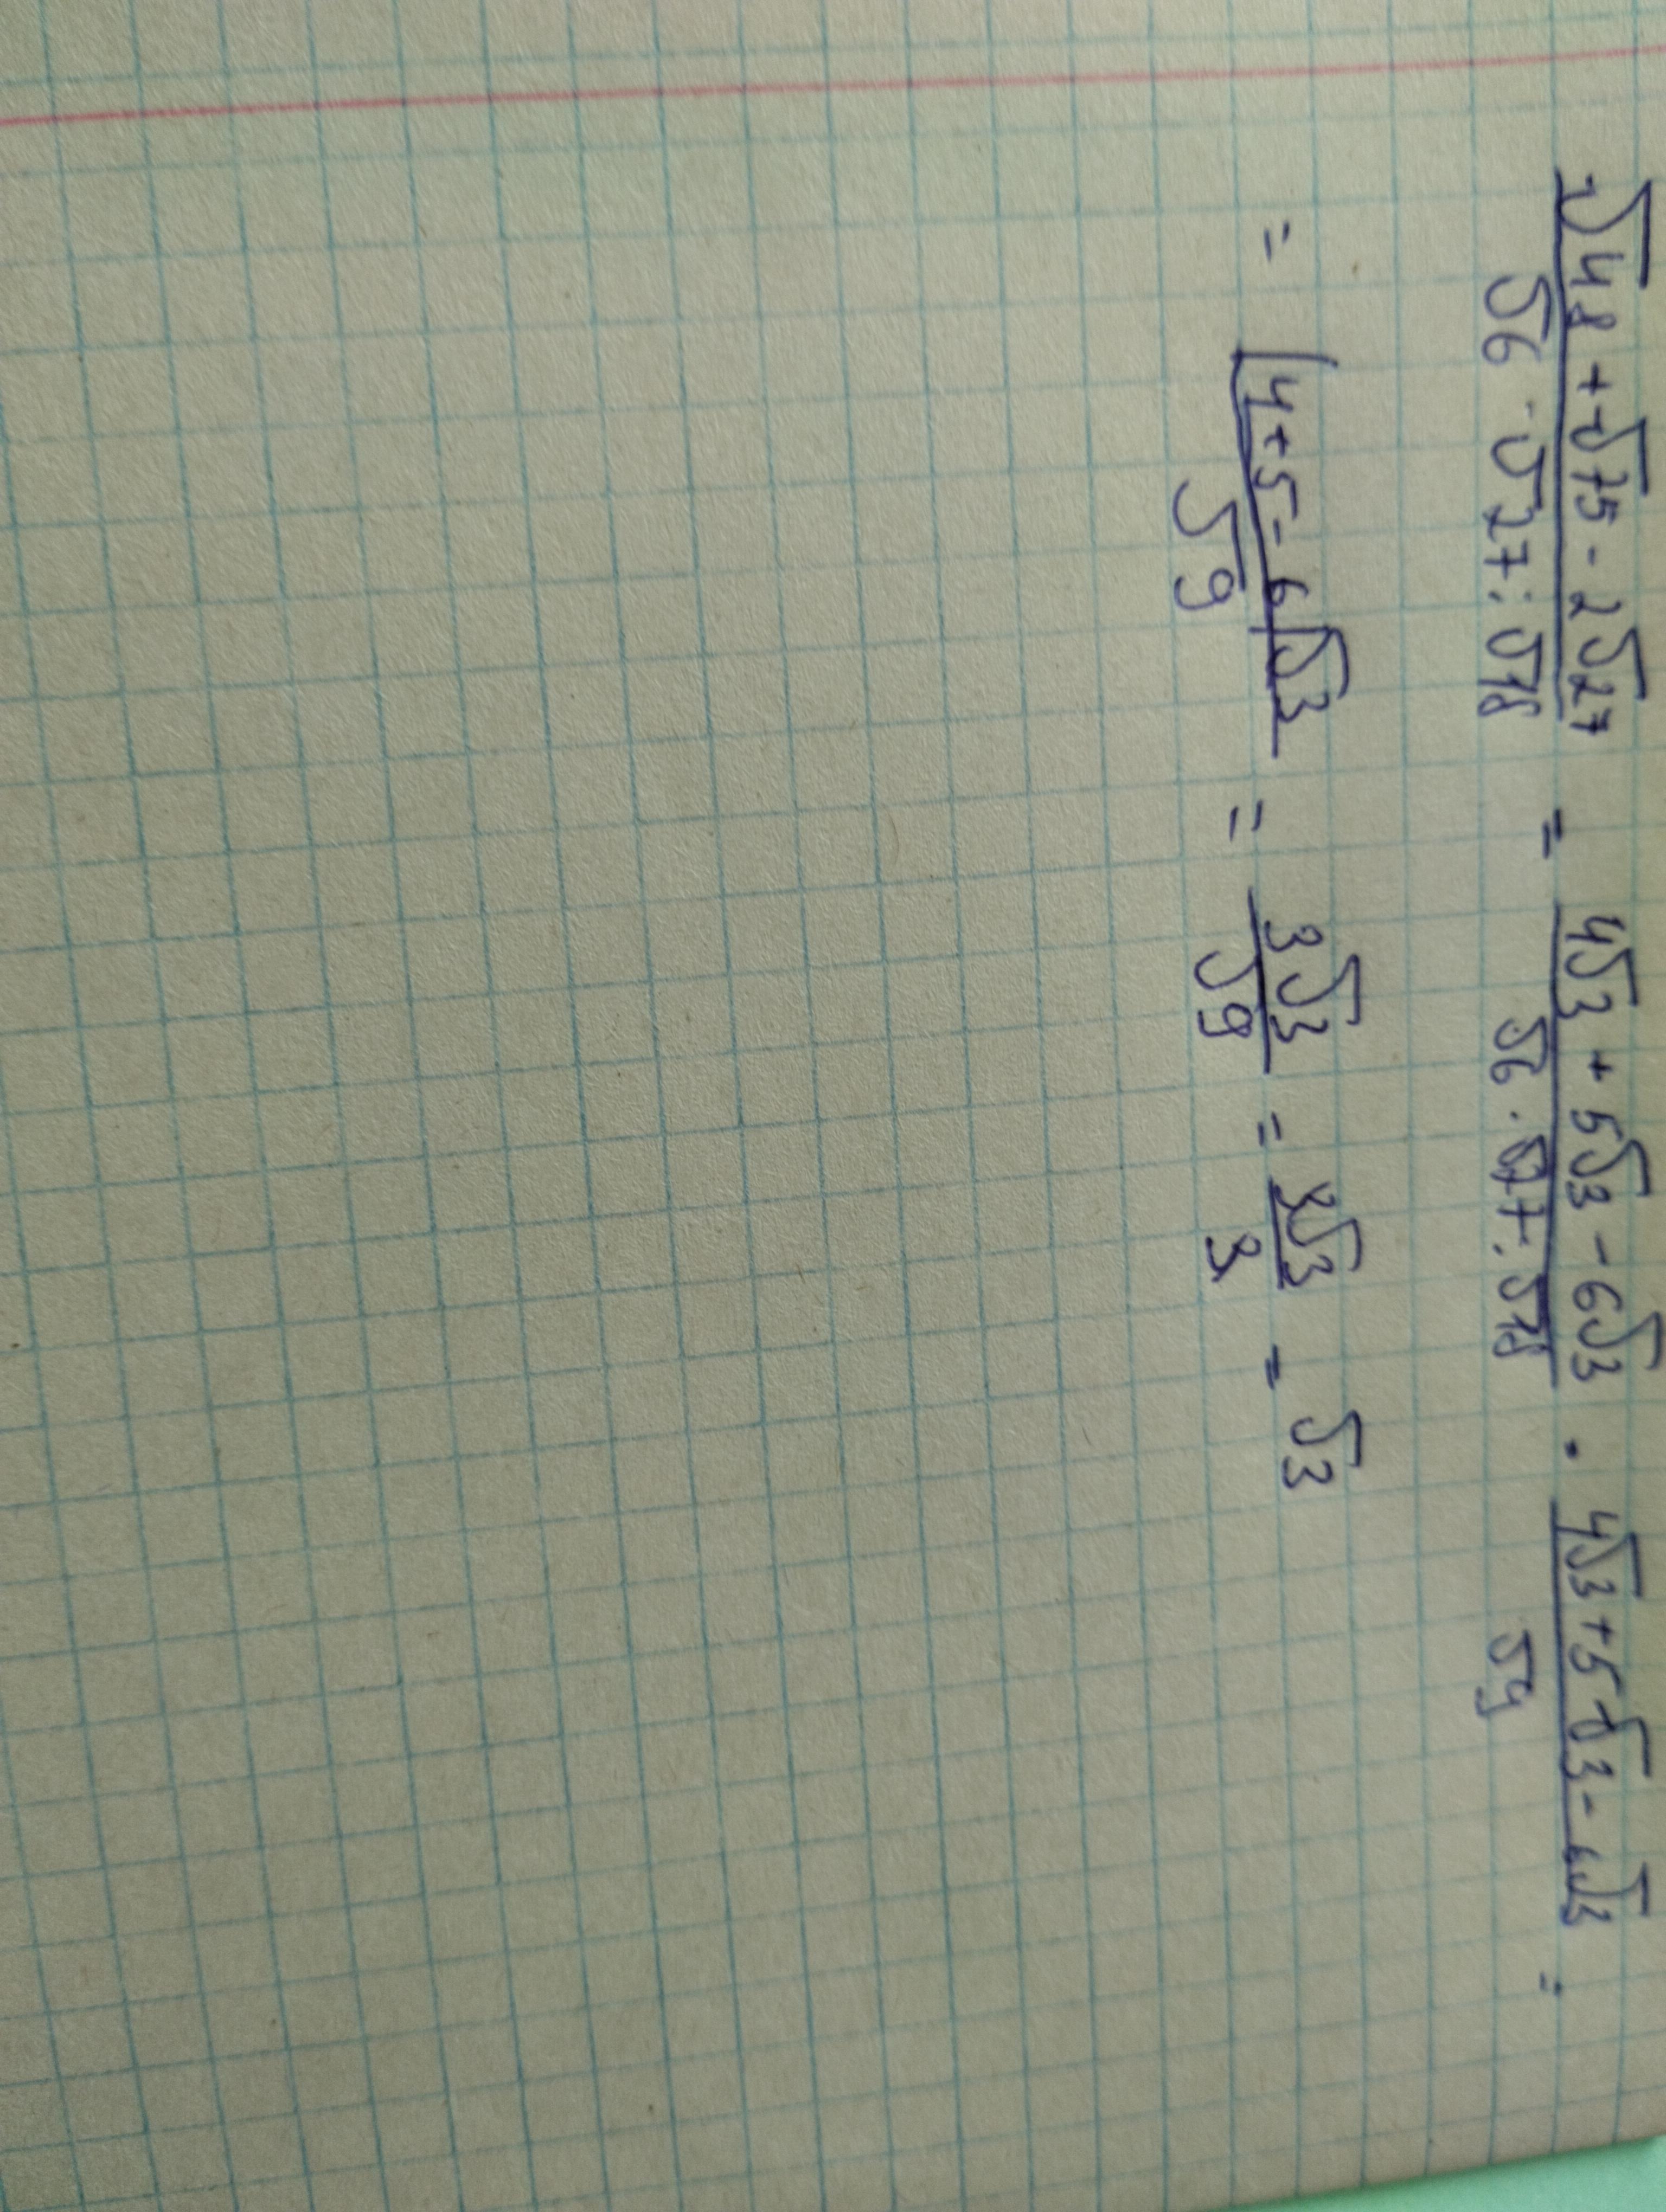 1) (√48 + √75 - 2√27)/(√6 · √27 : √18) = (4√3 + 5√3 - 6√3)/(√6 · √27 : √18) · (4√3 + 5√3 - 6√3)/√9 =
= (4+5-6)√3/√9 = 3√3/√9 = 3√3/3 = √3